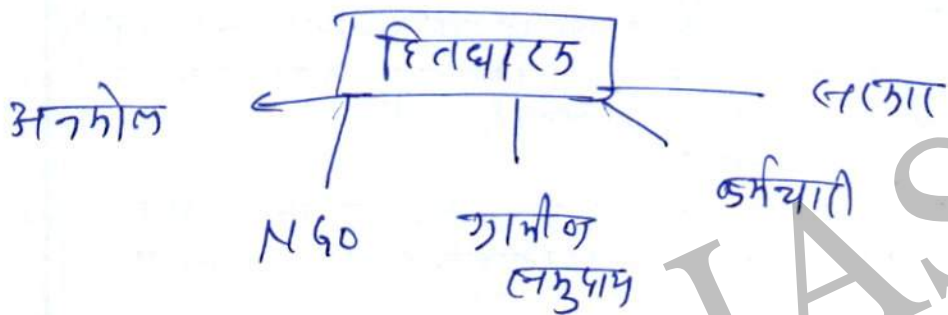 हितधारक
अनमोल
सरकार
NGO
ग्रामीण
समुदाय
कर्मचारी
IAS